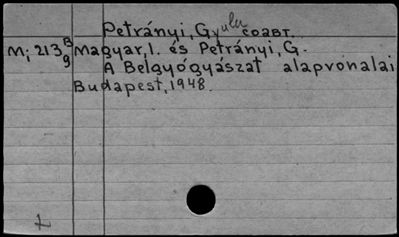 Petrányi, Gyula соавт.
M; 213 B/9 Magyar, I. és Petrányi, G.
A Belgyógyászat alapvonalai
Budapest, 1948.